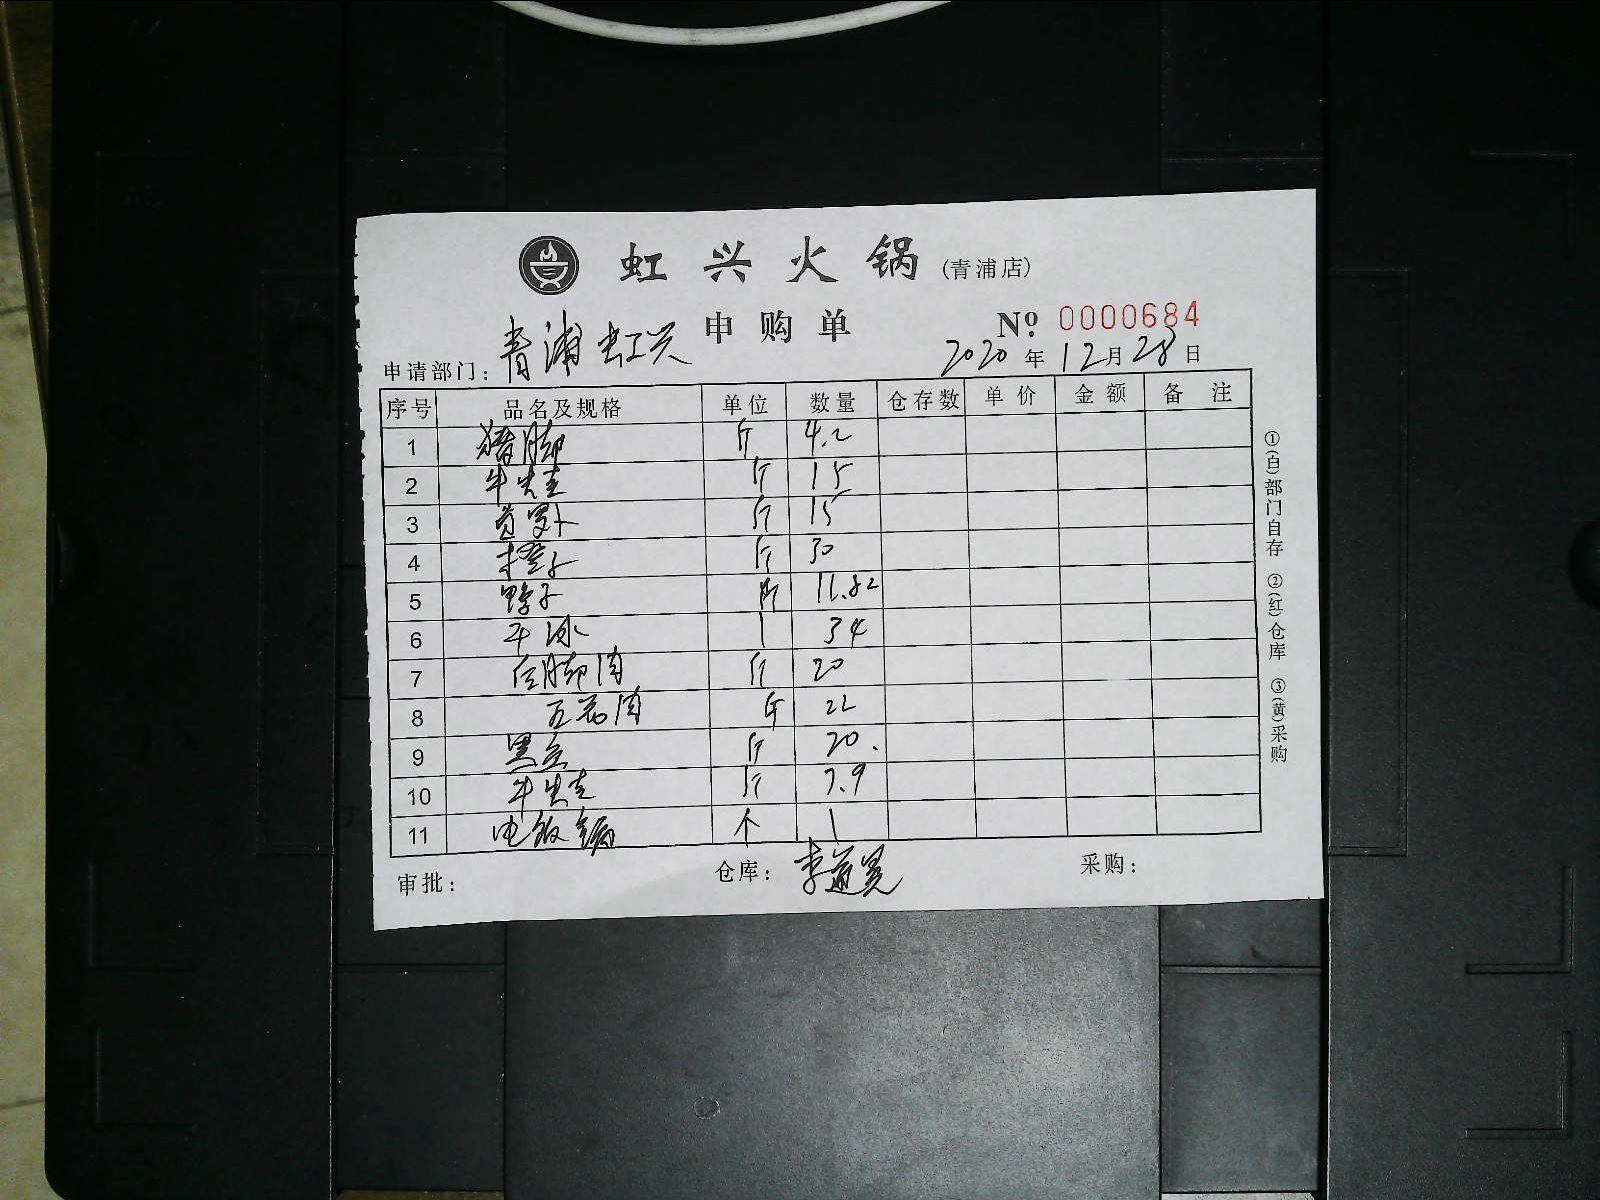 虹兴火锅(青浦店)
申购单 No: 0000684
申请部门: 青浦虹兴 2020年12月28日
序号 品名及规格 单位 数量 仓存数 单价 金额 备注
1 猪脚 斤 4.2
2 牛 斤 15
3 萝卜 斤 15
4 橙子 斤 30
5 鸭子 斤 11.82
6 34
7 后脚肉 斤 20
8 五花肉 斤 22
9 黑豆 斤 20.
10 牛 斤 7.9
11 电饭锅 个 1
审批: 仓库: 李 采购:
①(白)部门自存 ②(红)仓库 ③(黄)采购